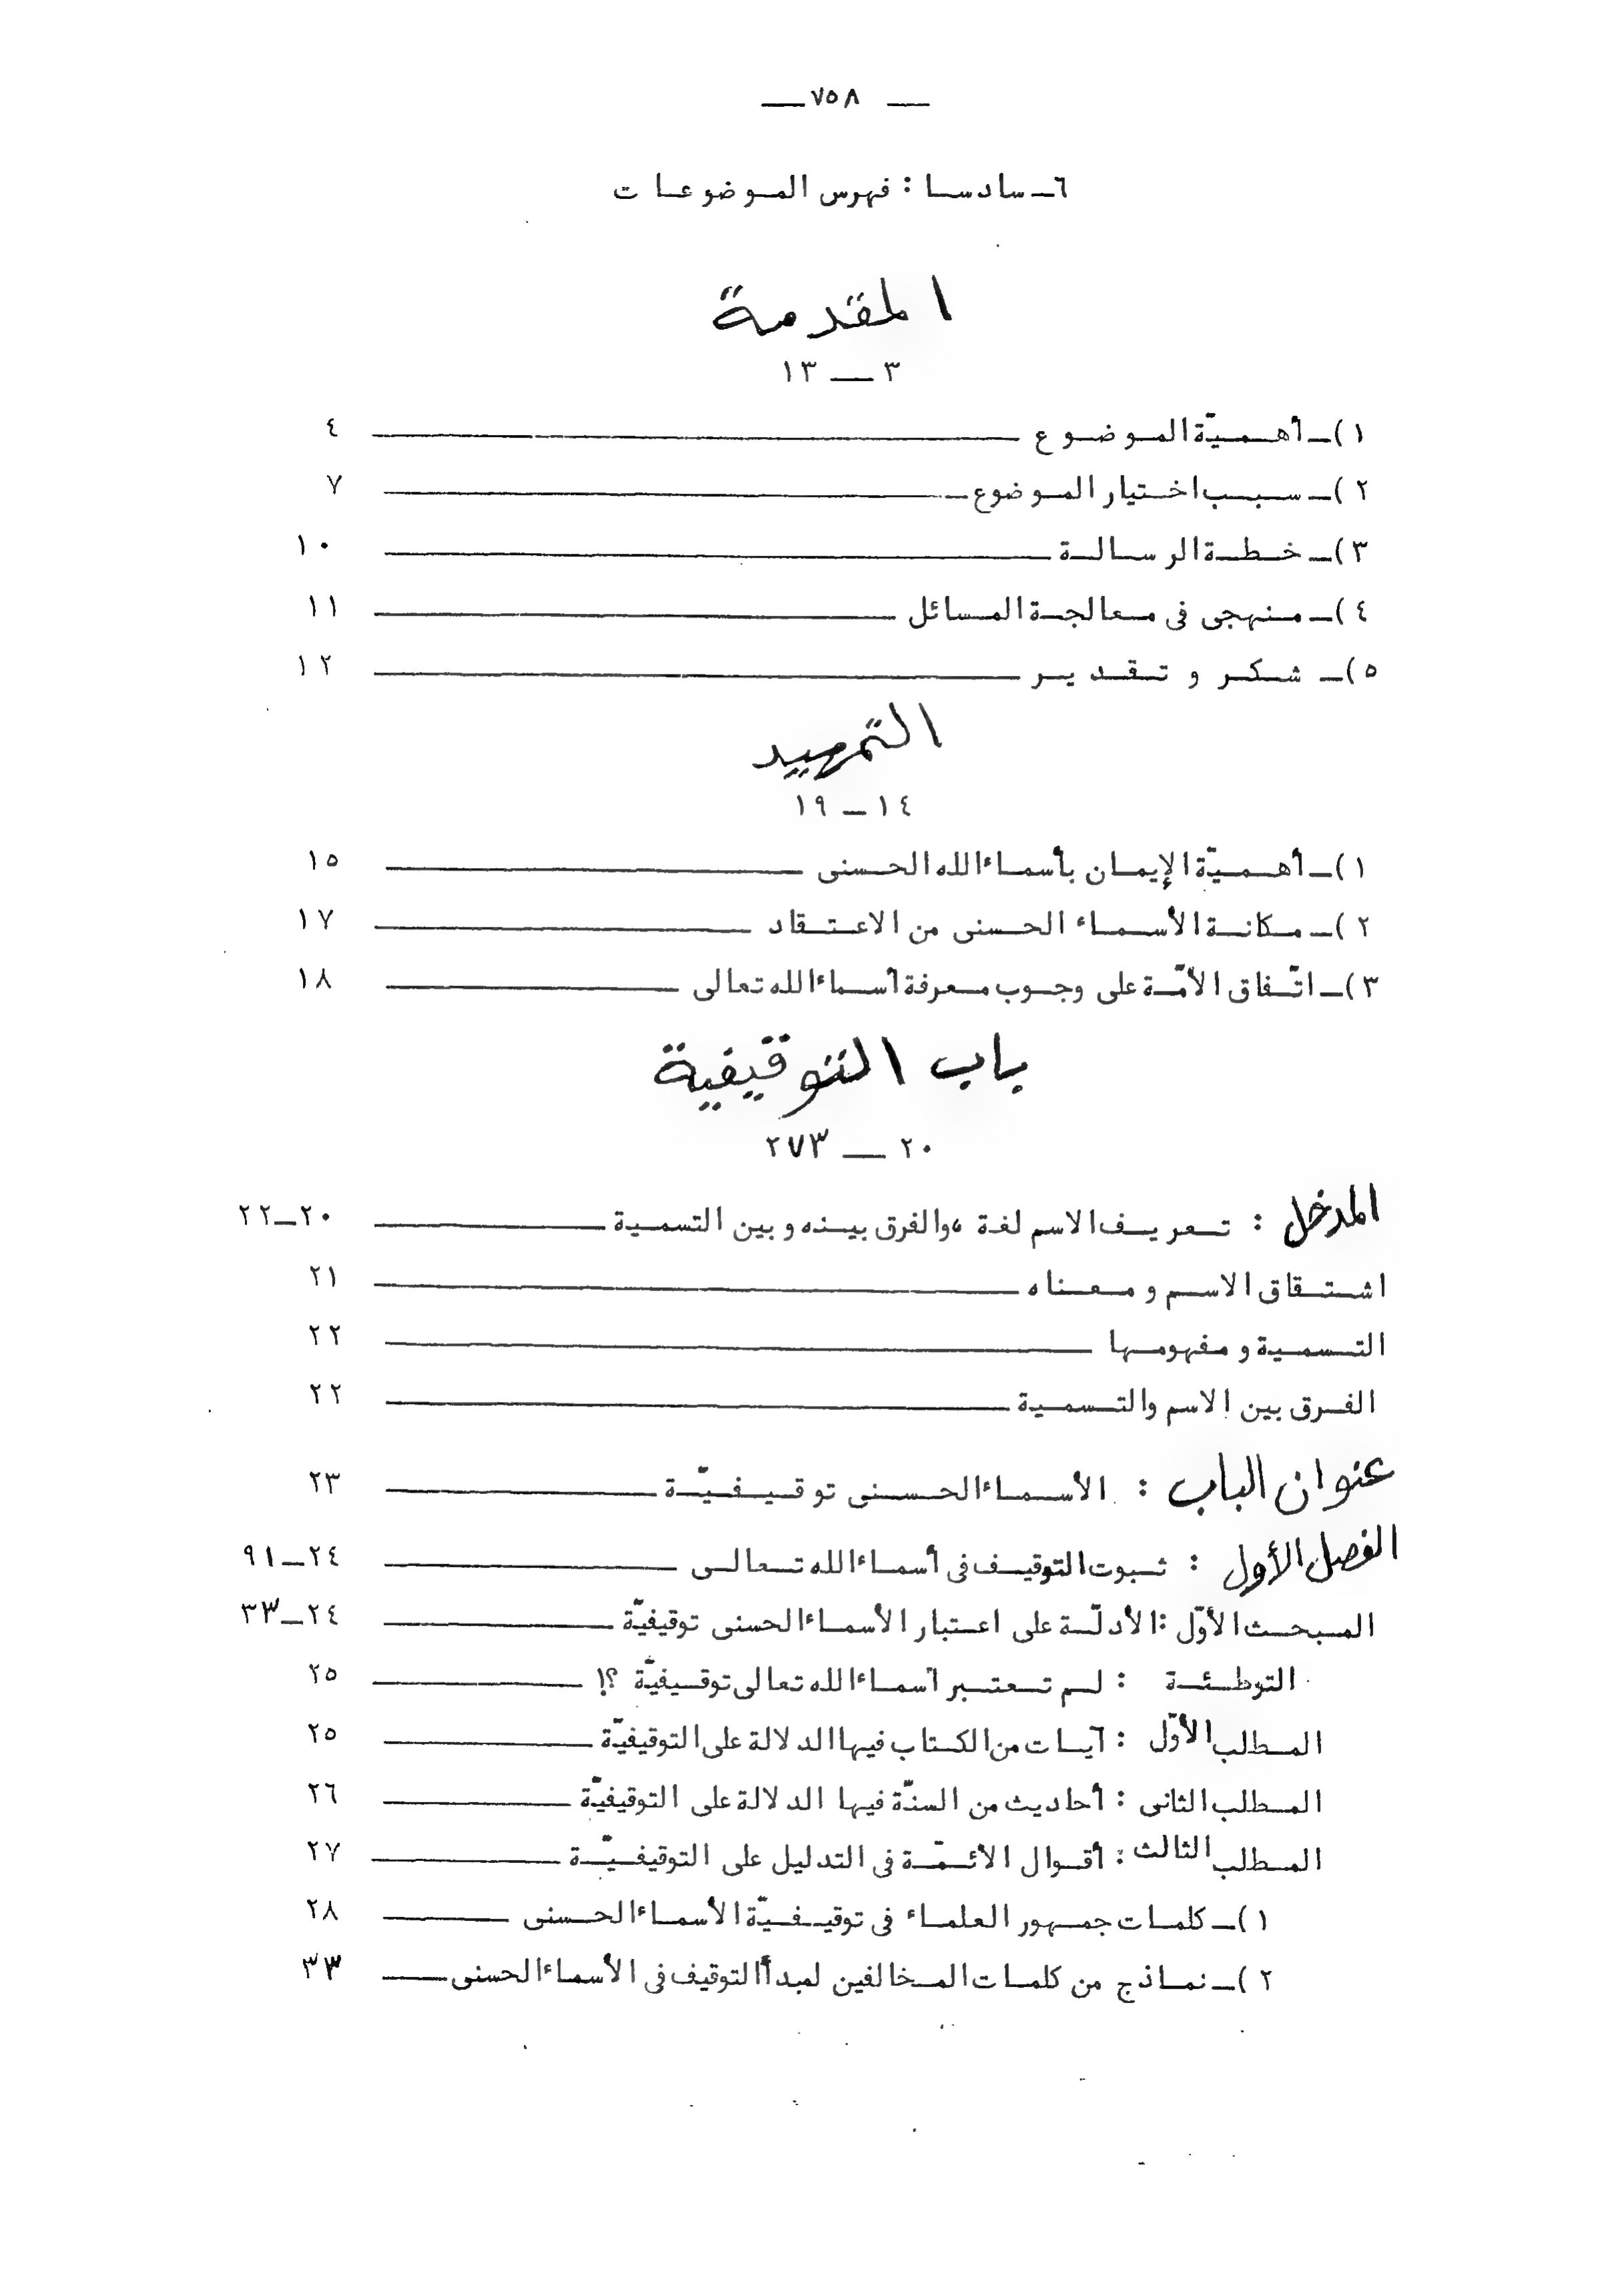 — ٧٥٨ —
٦ـ سادسا : فهرس الموضوعات
المقدمة
٣ — ١٣
١)ـ أهميّة الموضوع ٤
٢)ـ سبب اختيار الموضوع ٧
٣)ـ خطة الرسالة ١٠
٤)ـ منهجى فى معالجة المسائل ١١
٥)ـ شكر و تقدير ١٢
التمهيد
١٤ — ١٩
١)ـ أهميّة الإيمان بأسماء الله الحسنى ١٥
٢)ـ مكانة الأسماء الحسنى من الاعتقاد ١٧
٣)ـ اتّفاق الأمّة على وجوب معرفة أسماء الله تعالى ١٨
باب التوقيفية
٢٠ — ٢٧٣
المدخل : تعريف الاسم لغة ،والفرق بينه وبين التسمية ٢٠ـ٢٢
اشتقاق الاسم و معناه ٢١
التسمية و مفهومها ٢٢
الفرق بين الاسم والتسمية ٢٢
عنوان الباب : الأسماء الحسنى توقيفيّة ٢٣
الفصل الأول : ثبوت التوقيف فى أسماء الله تعالى ٢٤ـ٩١
المبحث الأوّل :الأدلّة على اعتبار الأسماء الحسنى توقيفيّة ٢٤ـ٣٣
التوطئة : لم تعتبر أسماء الله تعالى توقيفيّة ؟! ٢٥
المطلب الأوّل : آيات من الكتاب فيها الدلالة على التوقيفيّة ٢٥
المطلب الثانى : أحاديث من السنّة فيها الدلالة على التوقيفيّة ٢٦
المطلب الثالث : أقوال الأئمّة فى التدليل على التوقيفيّة ٢٧
١)ـ كلمات جمهور العلماء فى توقيفيّة الأسماء الحسنى ٢٨
٢)ـ نماذج من كلمات المخالفين لمبدأ التوقيف فى الأسماء الحسنى ٣٣